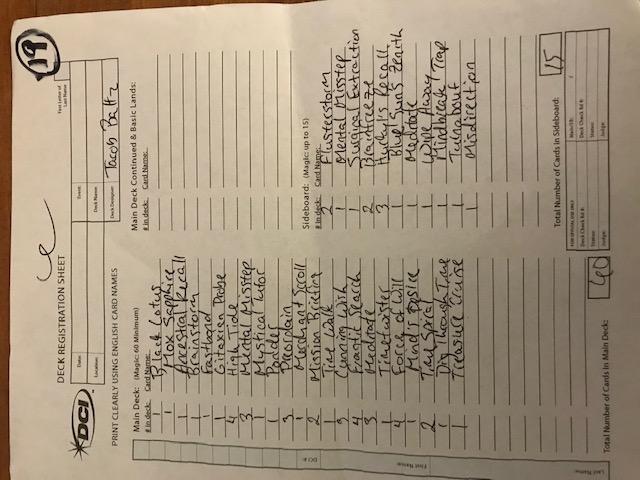 19
DECK REGISTRATION SHEET
First Letter of
Last Name
DCI
Date:
Event:
Location:
Deck Name:
Deck Designer: Jacob Baltz
PRINT CLEARLY USING ENGLISH CARD NAMES
Main Deck: (Magic: 60 Minimum)
# in deck: Card Name:
1 Black Lotus
1 Mox Sapphire
1 Ancestral Recall
1 Brainstorm
1 Fastbond
1 Gitaxian Probe
4 High Tide
3 Mental Misstep
1 Mystical Tutor
1 Ponder
3 Preordain
1 Merchant Scroll
2 Mission Briefing
1 Time Walk
3 Cunning Wish
4 Frantic Search
3 Meditate
1 Timetwister
4 Force of Will
1 Mind's Desire
2 Time Spiral
1 Dig Through Time
1 Treasure Cruise
Total Number of Cards in Main Deck: 60
Main Deck Continued & Basic Lands:
# in deck: Card Name:
Sideboard: (Magic: up to 15)
# in deck: Card Name:
2 Flusterstorm
1 Mental Misstep
1 Surgical Extraction
2 Brainfreeze
3 Hurkyl's Recall
1 Blue Sun's Zenith
1 Meditate
1 Wipe Away
1 Mindbreak Trap
1 Turnabout
1 Misdirection
Total Number of Cards in Sideboard: 15
FOR OFFICIAL USE ONLY
Main/SB: /
Deck Check Rd #:
Deck Check Rd #:
Status:
Status:
Judge:
Judge:
DCI #:
First Name:
Last Name: